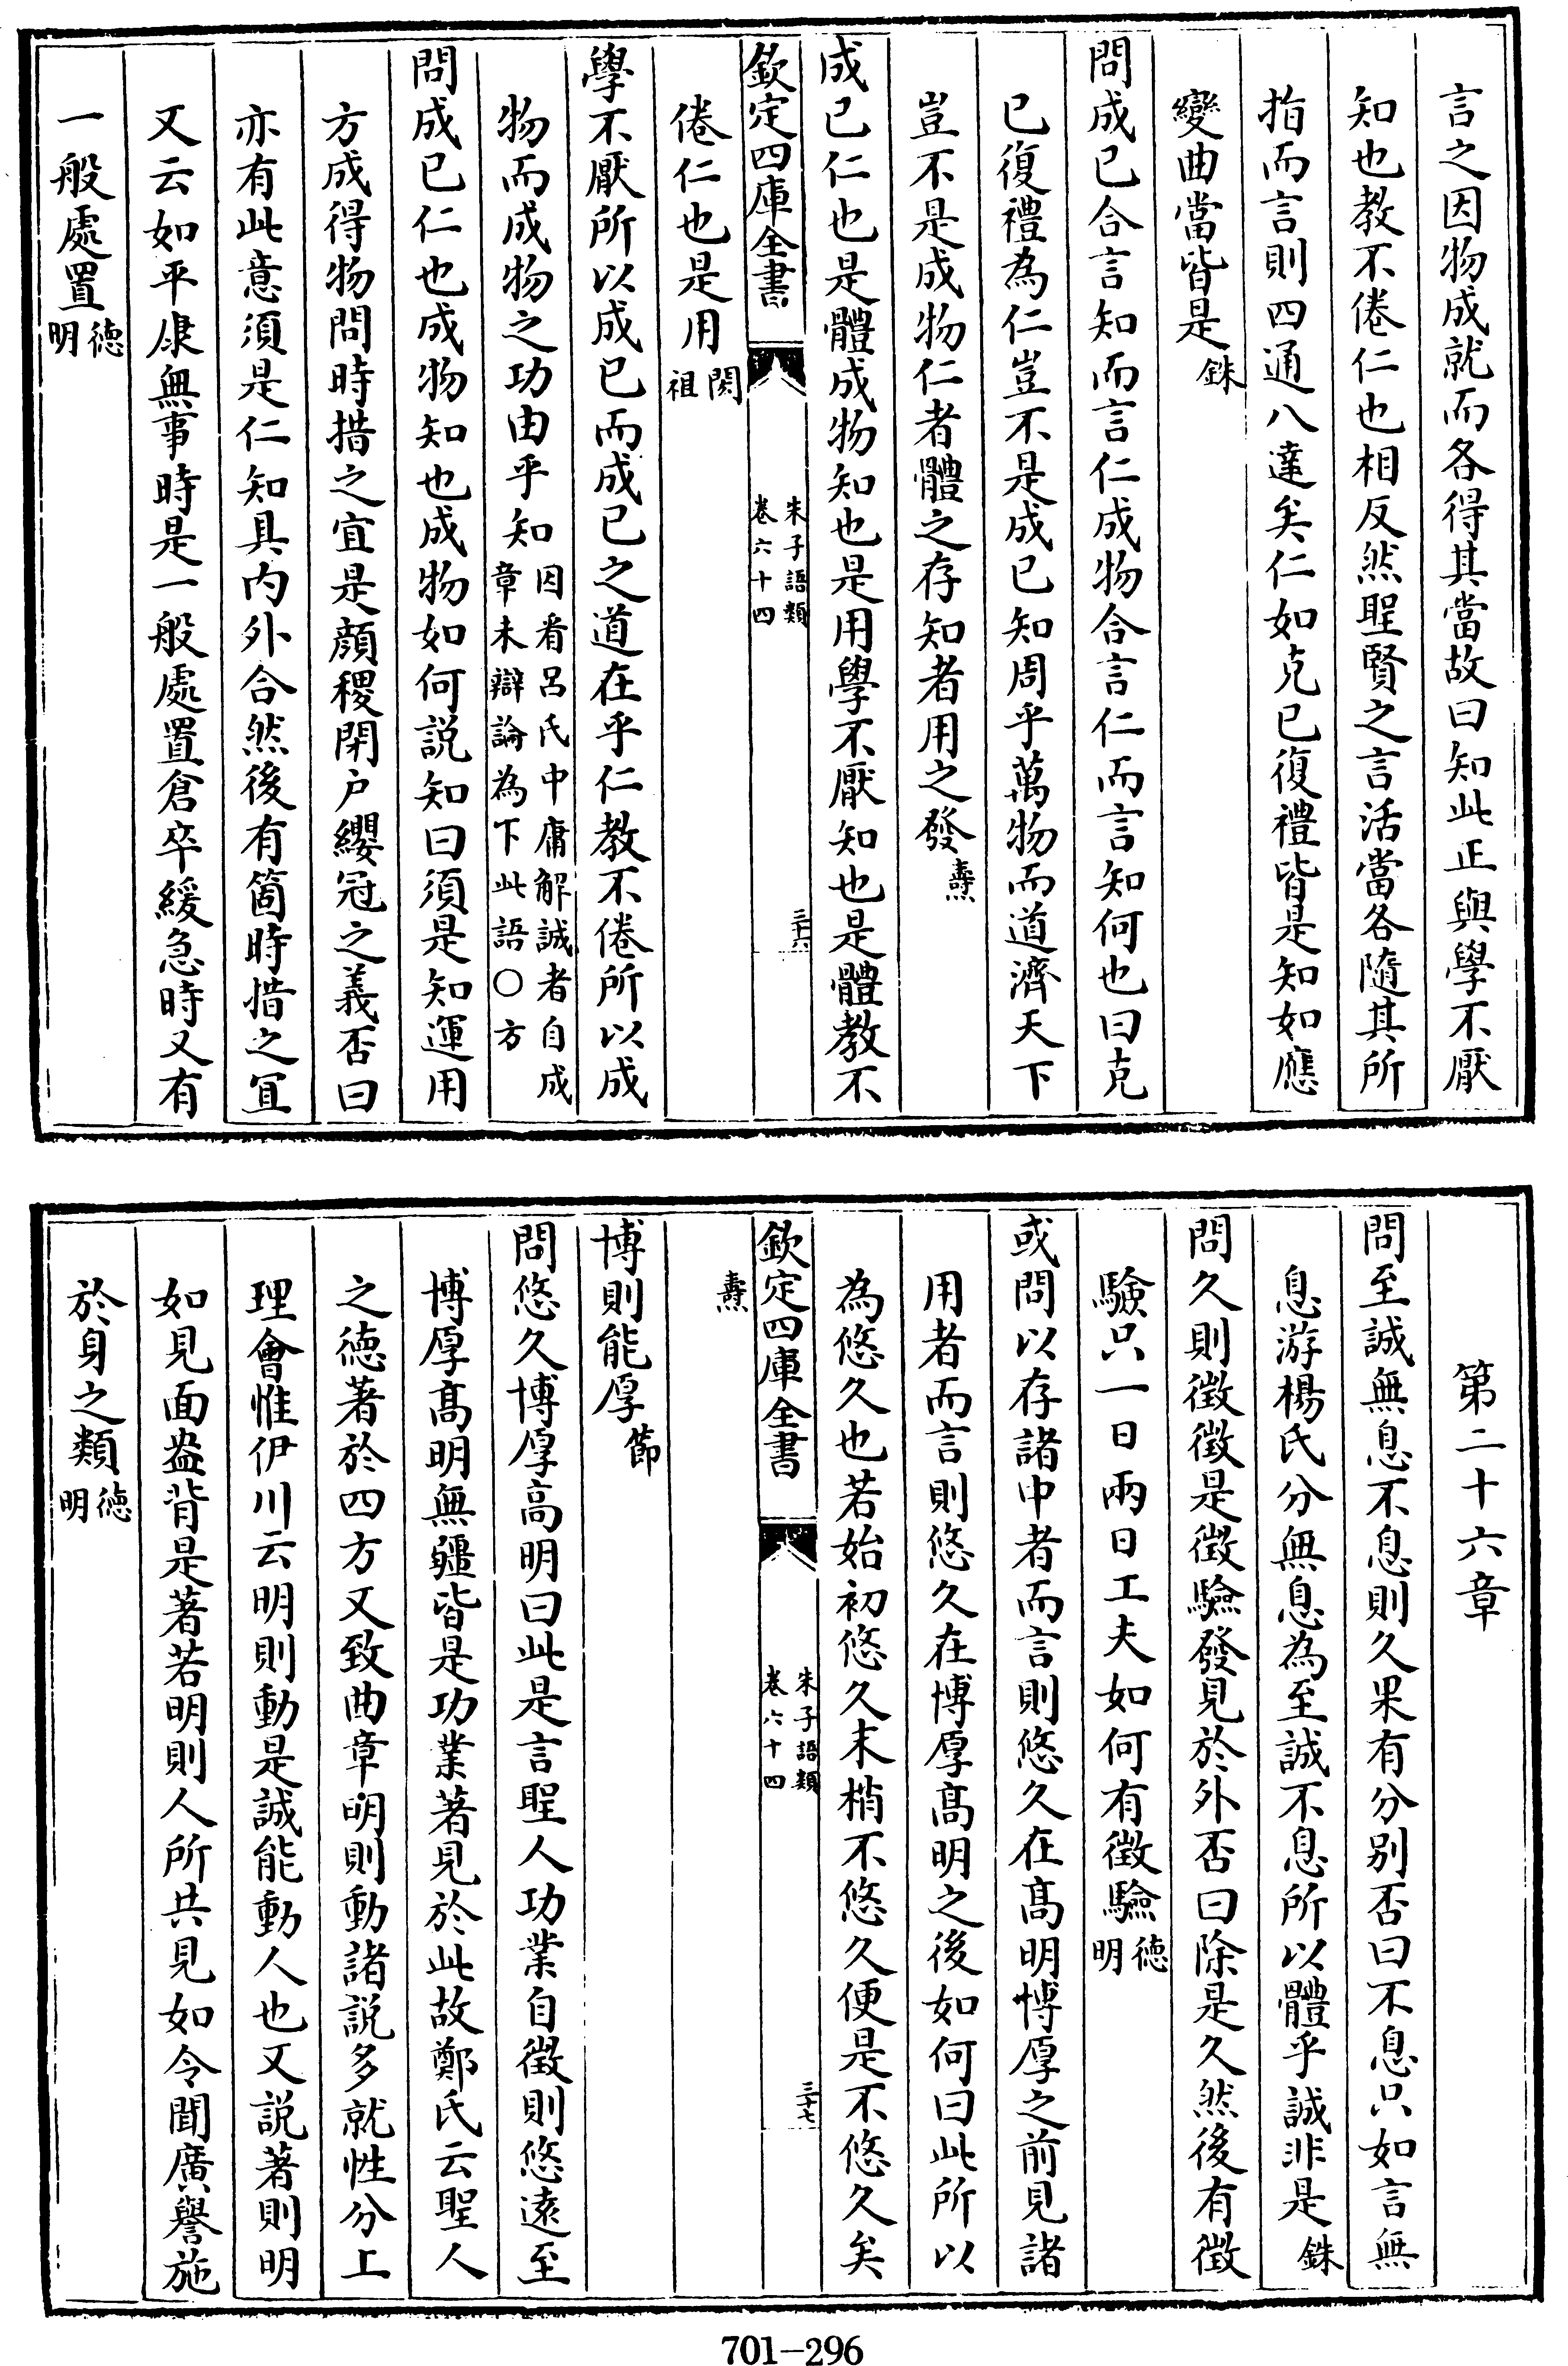 言之因物成就而各得其當故曰知此正與學不厭
知也教不倦仁也相反然聖賢之言活當各隨其所
指而言則四通八達矣仁如克已復禮皆是知如應
變曲當皆是銖
問成已合言知而言仁成物合言仁而言知何也曰克
已復禮為仁豈不是成已知周乎萬物而道濟天下
豈不是成物仁者體之存知者用之發燾
成已仁也是體成物知也是用學不厭知也是體教不
欽定四庫全書
朱子語類
卷六十四
三十六
倦仁也是用閎祖
學不厭所以成已而成已之道在乎仁教不倦所以成
物而成物之功由乎知因看呂氏中庸解誠者自成章未辯論為下此語○方
問成已仁也成物知也成物如何說知曰須是知運用
方成得物問時措之宜是顔稷閉户纓冠之義否曰
亦有此意須是仁知具内外合然後有箇時措之宜
又云如平康無事時是一般處置倉卒緩急時又有
一般處置徳明
第二十六章
問至誠無息不息則久果有分别否曰不息只如言無
息游楊氏分無息為至誠不息所以體乎誠非是銖
問久則徴徴是徴驗發見於外否曰除是久然後有徴
驗只一日兩日工夫如何有徴驗徳明
或問以存諸中者而言則悠久在髙明博厚之前見諸
用者而言則悠久在博厚髙明之後如何曰此所以
為悠久也若始初悠久末梢不悠久便是不悠久矣
欽定四庫全書
朱子語類
卷六十四
三十七
燾
博則能厚節
問悠久博厚高明曰此是言聖人功業自徴則悠遠至
博厚髙明無疆皆是功業著見於此故鄭氏云聖人
之徳著於四方又致曲章明則動諸説多就性分上
理會惟伊川云明則動是誠能動人也又説著則明
如見面盎背是著若明則人所共見如令聞廣譽施
於身之類徳明
701-296